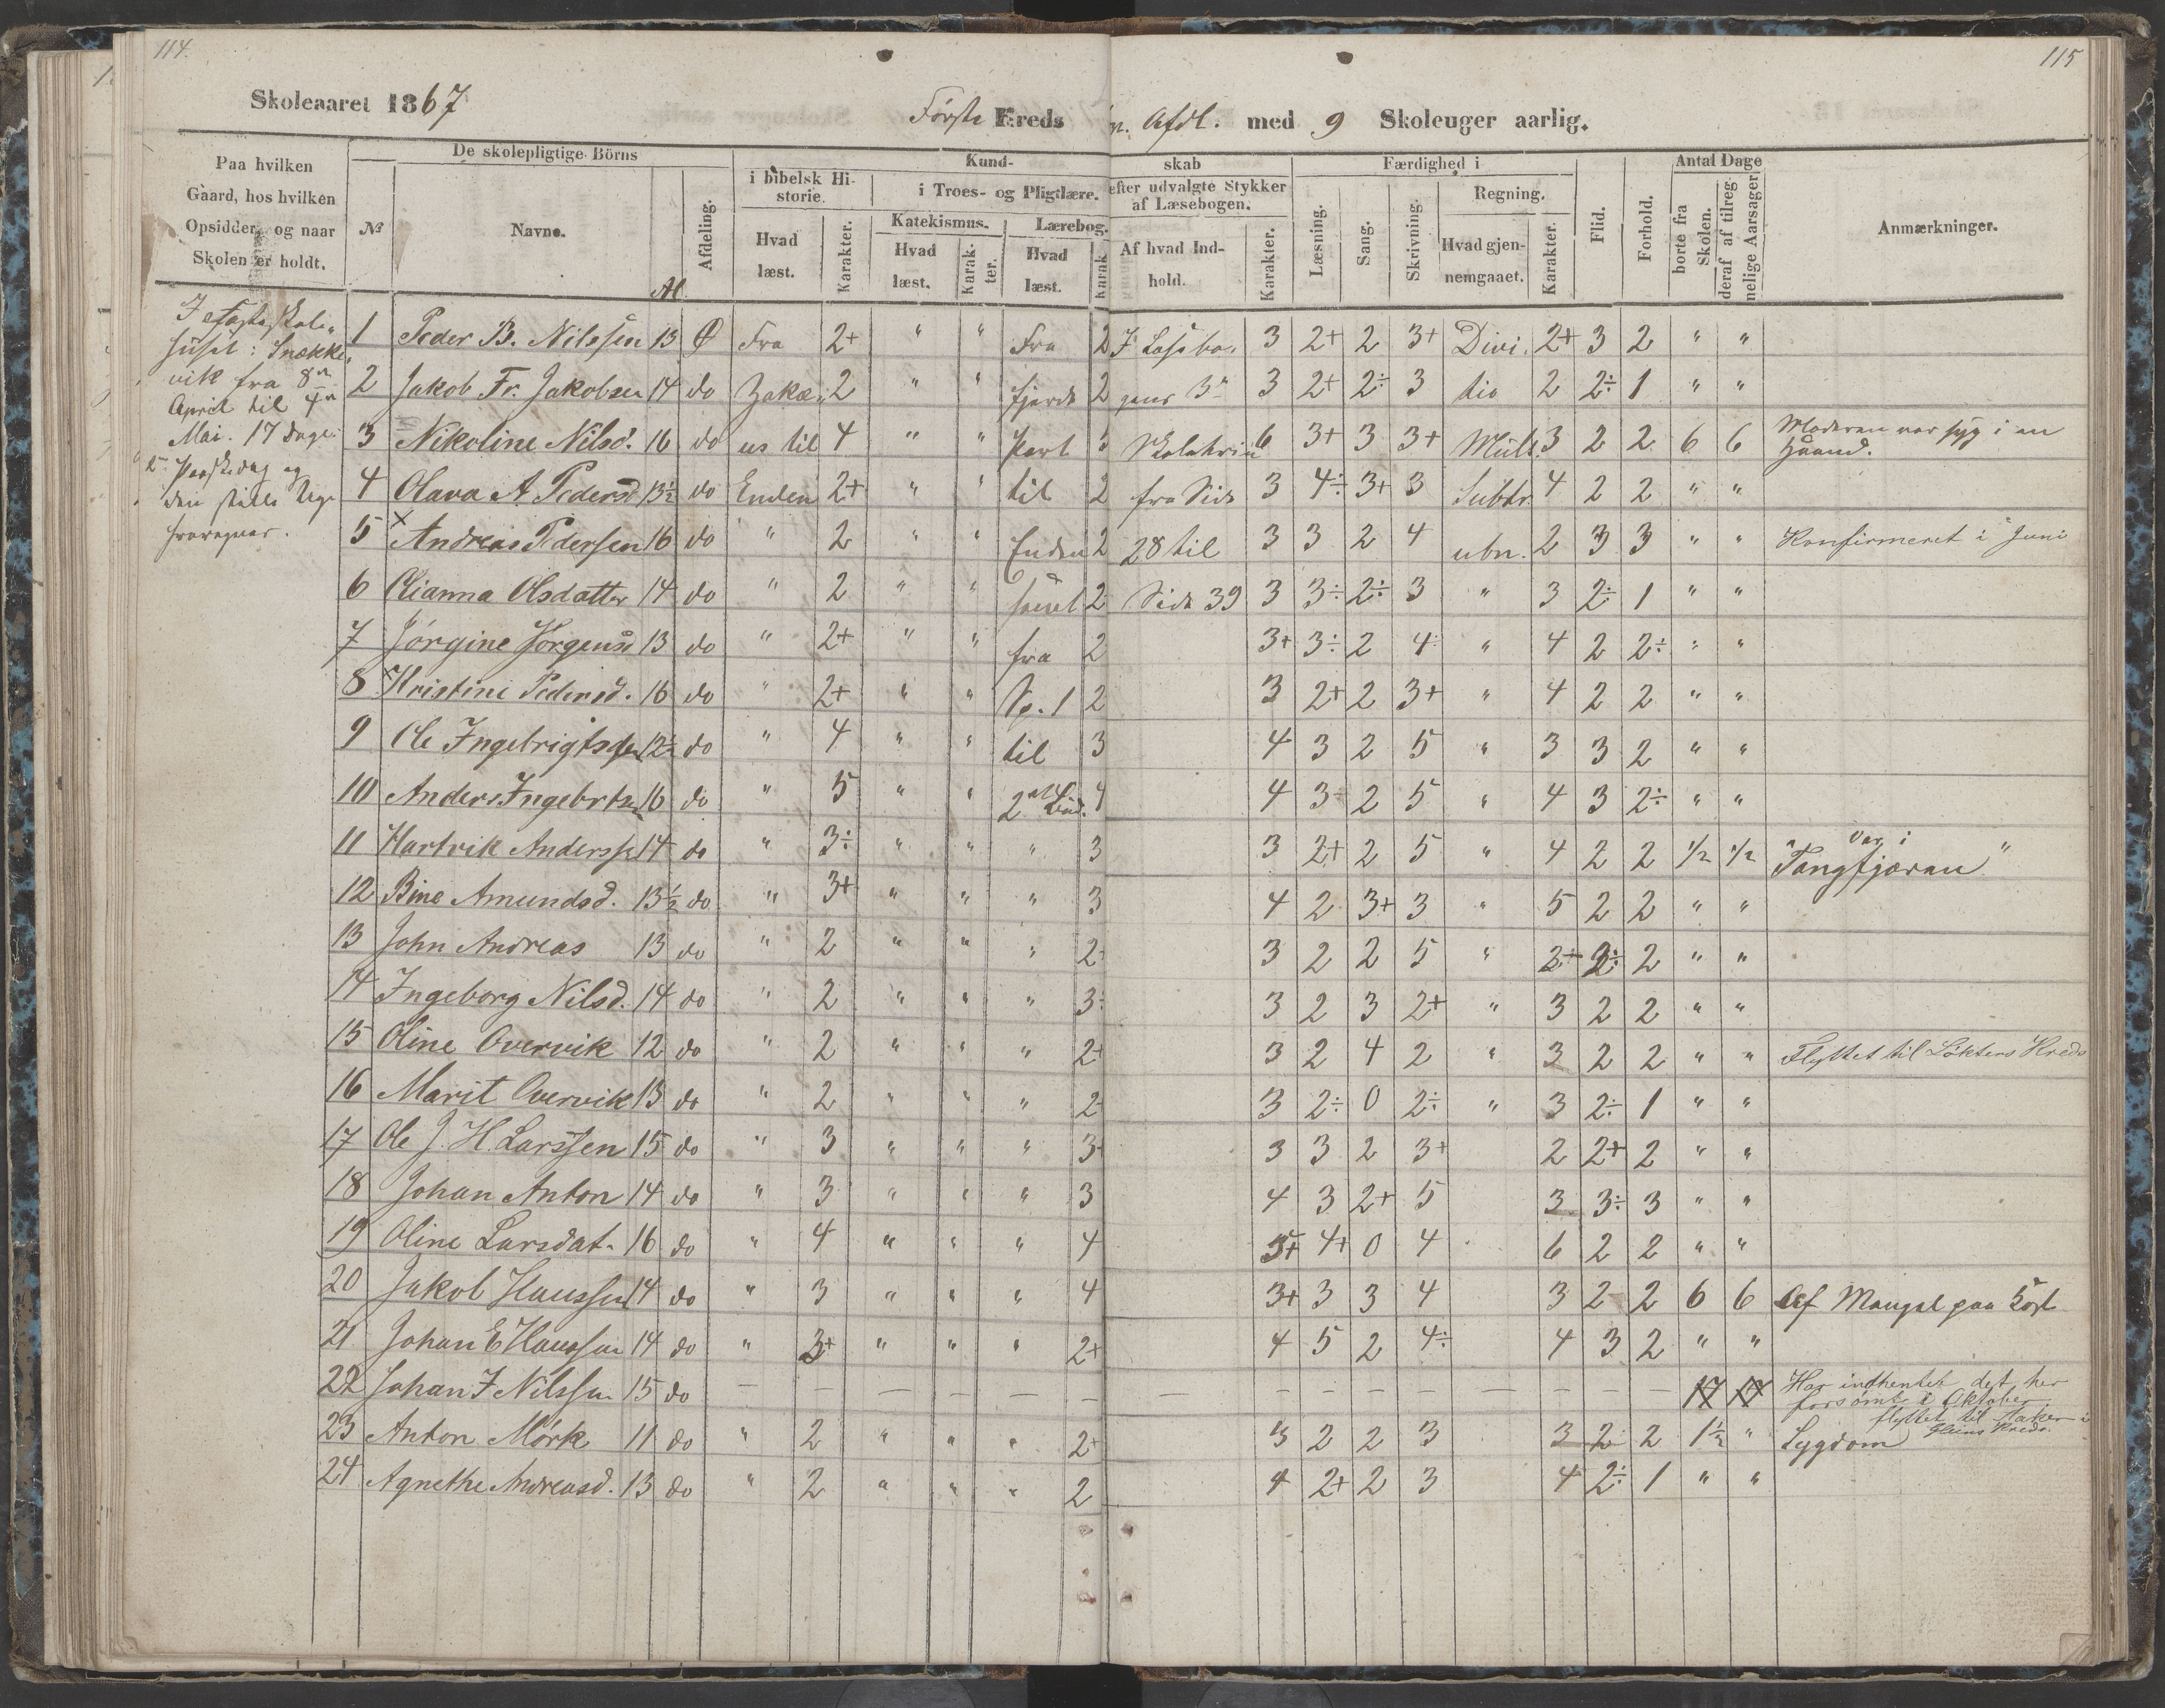 114.
115
Skoleaaret 1867
Første Kreds ø. Afdl. med 9 Skoleuger aarlig.
Paa hvilken Gaard, hos hvilken Opsidder, og naar Skolen er holdt.
De skolepligtige Börns
№
Navne.
Al.
Afdeling.
Kundskab
i bibelsk Historie.
Hvad læst.
Karakter.
i Troes- og Pligtlære.
Katekismus.
Hvad læst.
Karakter.
Lærebog.
Hvad læst.
Karak
efter udvalgte Stykker af Læsebogen.
Af hvad Indhold.
Karakter.
Færdighed i
Læsning.
Sang.
Skrivning.
Regning.
Hvad gjennemgaaet.
Karakter.
Flid.
Forhold.
Antal Dage
borte fra Skolen.
deraf af tilregnelige Aarsager
Anmærkninger.
huset: Snække-
vik fra 8n
April til 4n
Mai. 17 Dage.
2. Paaskedag og
den stille Uge
fraregnes.
1 Peder B. Nilssen 13 Ø Fra 2+ " " Fra 2 I Læsebo- 3 2+ 2 3+ Divi. 2+ 3 2 " "
2 Jakob Fr. Jakobsen 14 do Zakæ- 2 " " fjerde 2 gens 3n 3 2+ 2÷ 3 tio 2 2÷ 1 " "
3 Nikoline Nilsd. 16 do us til 4 " " Part 3 6 3+ 3 3+ Mult. 3 2 2 6 6 Moderen var syg i en Haand.
4 Olava A Pedersd 13½ do Enden 2+ " " til 2 fra Side 3 4÷ 3+ 3 Subtr. 4 2 2 " "
5 × Andreas Pedersen 16 do " 2 " " Enden 2 28 til 3 3 2 4 ubn. 2 3 3 " " Konfirmeret i Juni
6 Olianna Olsdatter 14 do " 2 " " samt 2 Side 39 3 3÷ 2÷ 3 " 3 2÷ 1 " "
7 Jørgine Jørgensd 13 do " 2+ " " fra 2 3+ 3÷ 2 4÷ " 4 2 2÷ " "
8 × Kristine Pedersd. 16 do " 2+ " " Sp. 1 2 3 2+ 2 3+ " 4 2 2 " "
9 Ole Ingebrigtsen 12½ do " 4 " " til 3 4 3 2 5 " 3 3 2 " "
10 Anders Ingebrtsn 16 do " 5 " " 2det Bud. 4 4 3÷ 2 5 " 4 3 2÷ " "
11 Hartvik Anderssen 14 do " 3÷ " " " 3 3 2+ 2 5 " 4 2 2 1/2 1/2 Var i "Tangfjæren"
12 Bine Amundsd. 13½ do " 3+ " " " 3 4 2 3+ 3 " 5 2 2 " "
13 John Andreas 13 do " 2 " " " 2÷ 3 2 2 5 " 3+ 2÷ 2 " "
14 Ingeborg Nilsd. 14 do " 2 " " " 3÷ 3 2 3 2+ " 3 2 2 " "
15 Oline Overvik 12 do " 2 " " " 2+ 3 2 4 2 " 3 2 2 " " Flyttet til Løkters Kreds
16 Marit Overvik 13 do " 2 " " " 2÷ 3 2÷ 0 2÷ " 3 2÷ 1 " "
17 Ole J. H. Larssen 15 do " 3 " " " 3÷ 3 3 2 3+ 2 2+ 2 " "
18 Johan Anton 14 do " 3 " " " 3 4 3 2+ 5 3 3÷ 3 " "
19 Oline Larsdat. 16 do " 4 " " " 4 3+ 4+ 0 4 6 2 2 " "
20 Jakob Hanssen 14 do " 3 " " " 4 3+ 3 3 4 3 2 2 6 6 Af Mangel paa Kost
21 Johan E Hanssen 14 do " 3+ " " " 2+ 4 5 2 4÷ 4 3 2 " "
22 Johan J Nilssen 15 do — — — — — — — — — — — — — — — 17 17 Har indhentet det her forsømte i Oktober
23 Anton Mørk 11 do " 2 " " " 2+ 3 2 2 3 3 2 2 1½ " Sygdom flyttet til Kreds.
24 Agnethe Andreasd. 13 do " 2 " " " 2 4 2+ 2 3 4 2÷ 1 " "